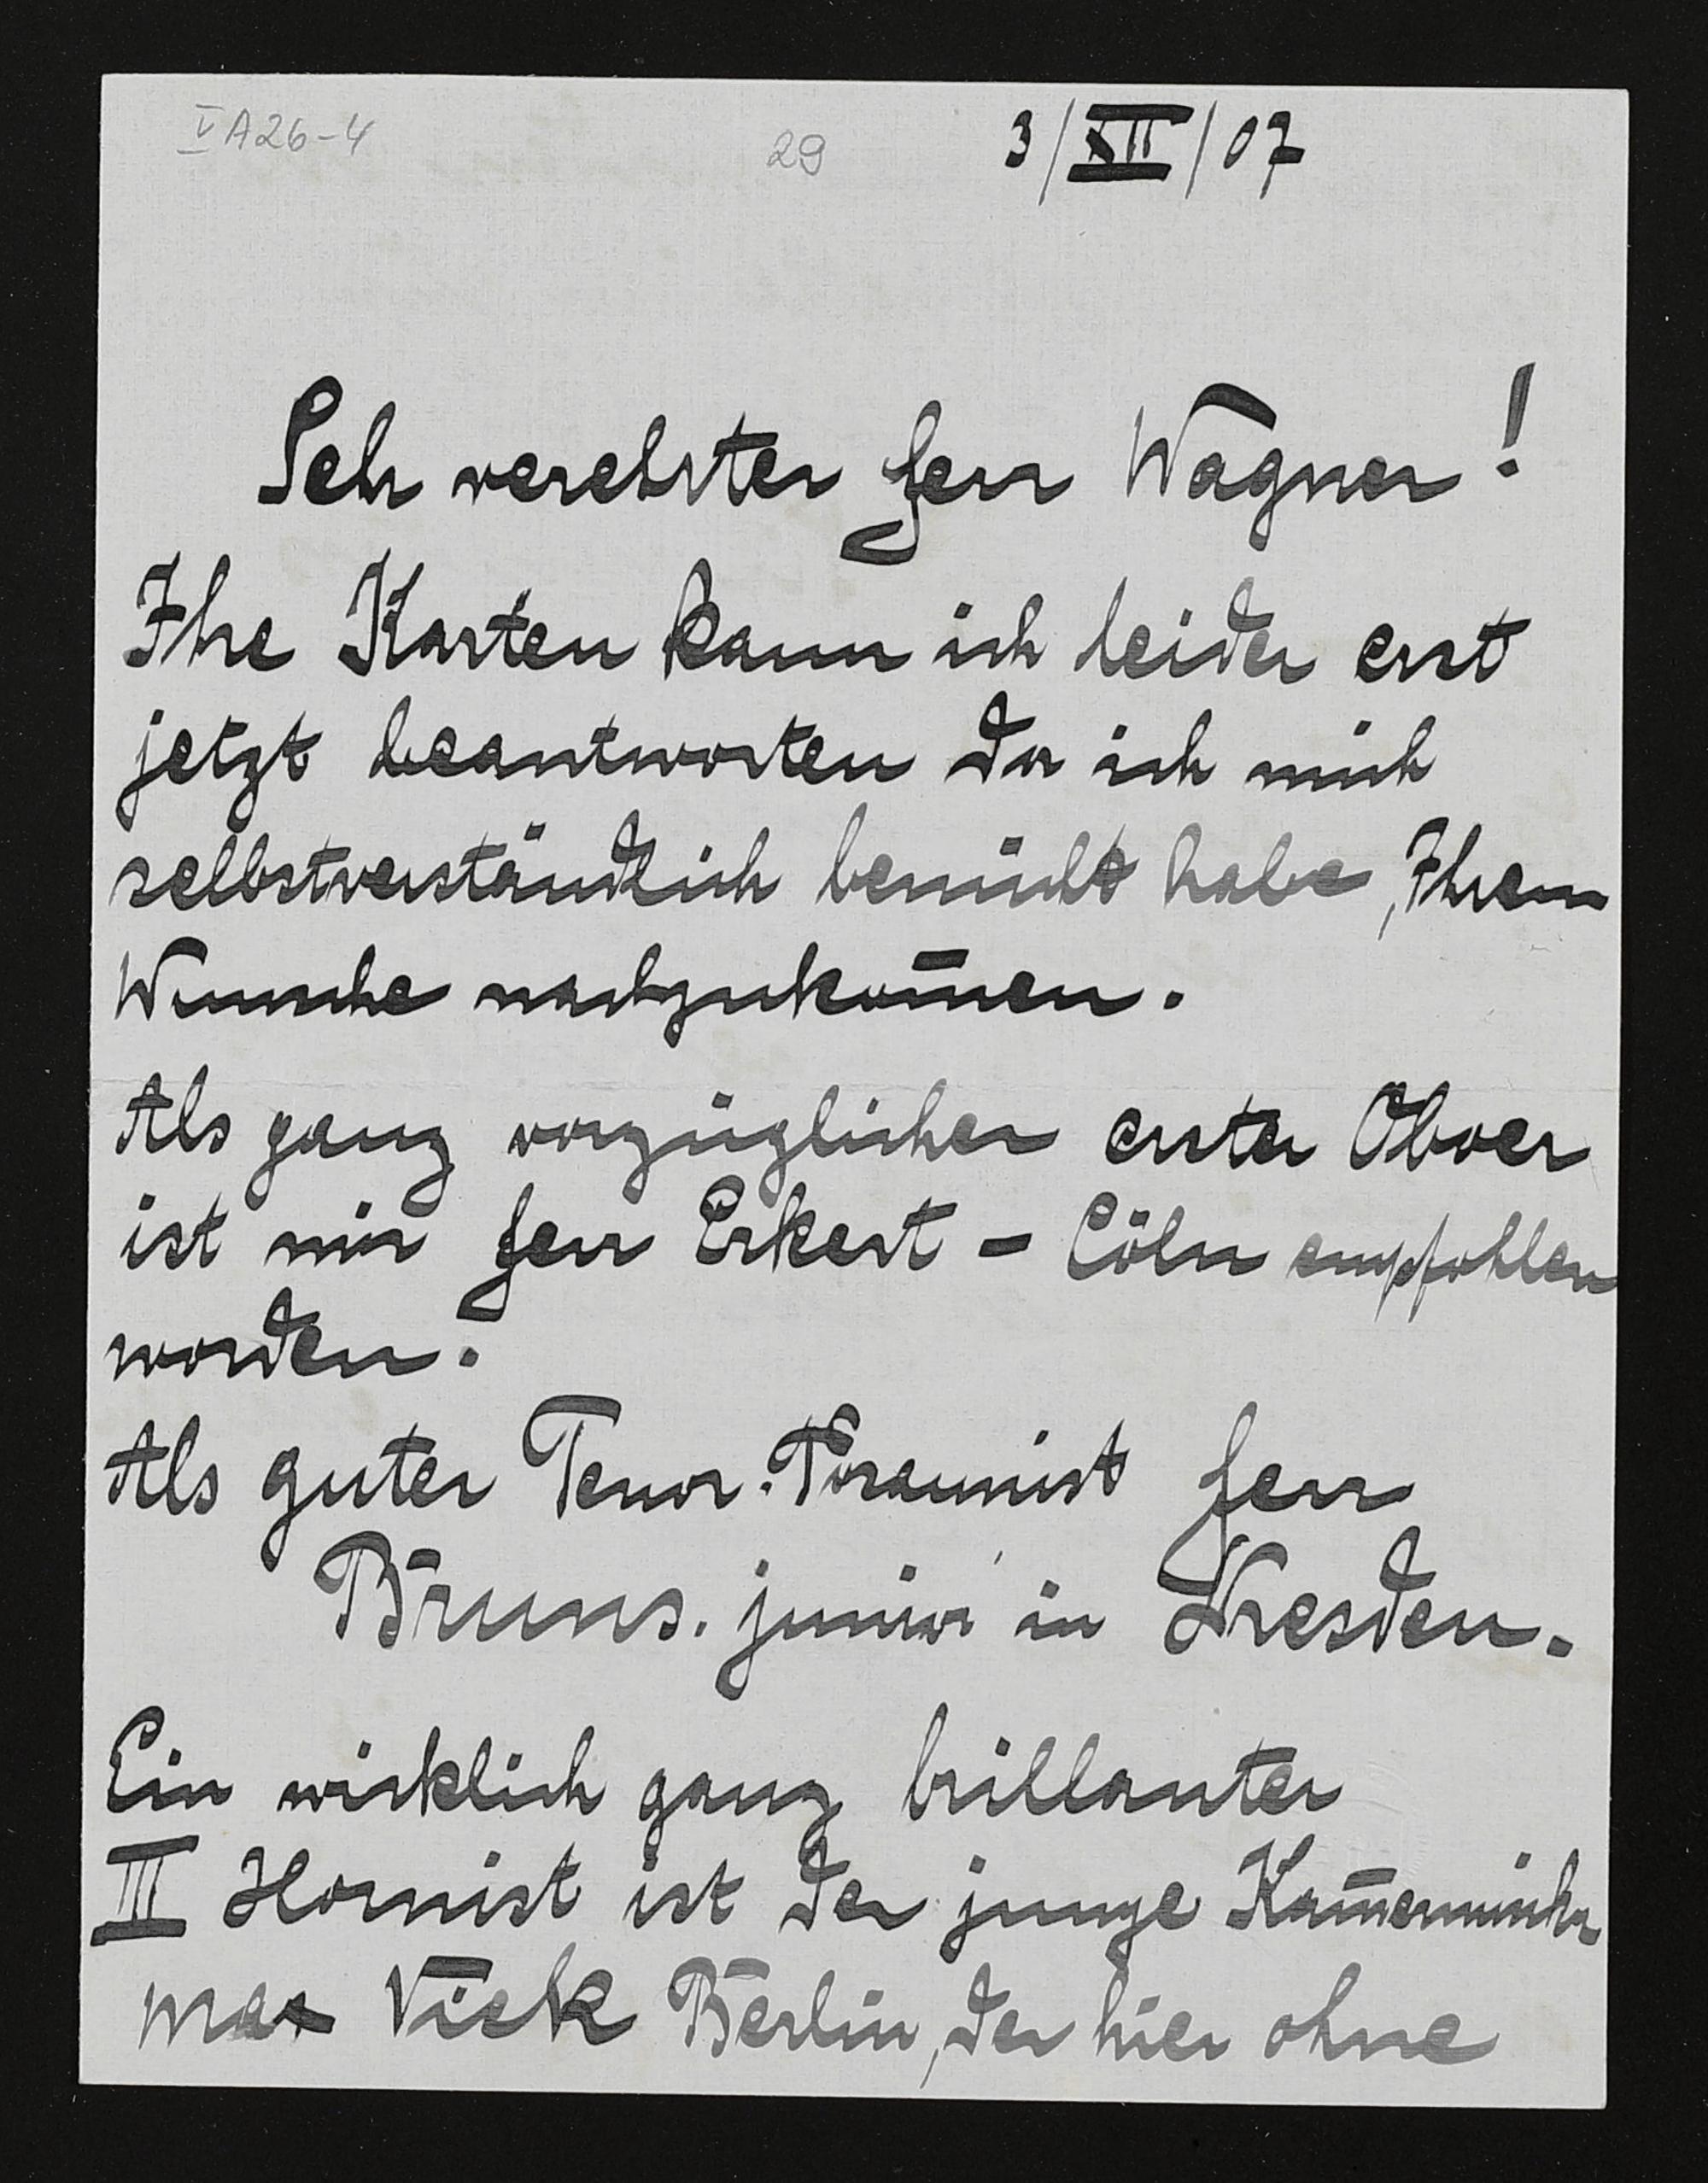 V A26-4
29
3/XII/07
Sehr verehrter Herr Wagner!
Ihre Karten kann ich leider erst
jetzt beantworten da ich mich
selbstverständlich bemüht habe, Ihrem
Wunsche nachzukom̄en.
Als ganz vorzüglicher erster Oboer
ist mir Herr Erkert - Cöln empfohlen
worden.
Als guter Tenor-Posaunist Herr
Bruns. junior in Dresden.
Ein wirklich ganz brillanter
III Hornist ist der junge Kam̄ermusiker
Max Vick Berlin, der hier ohne